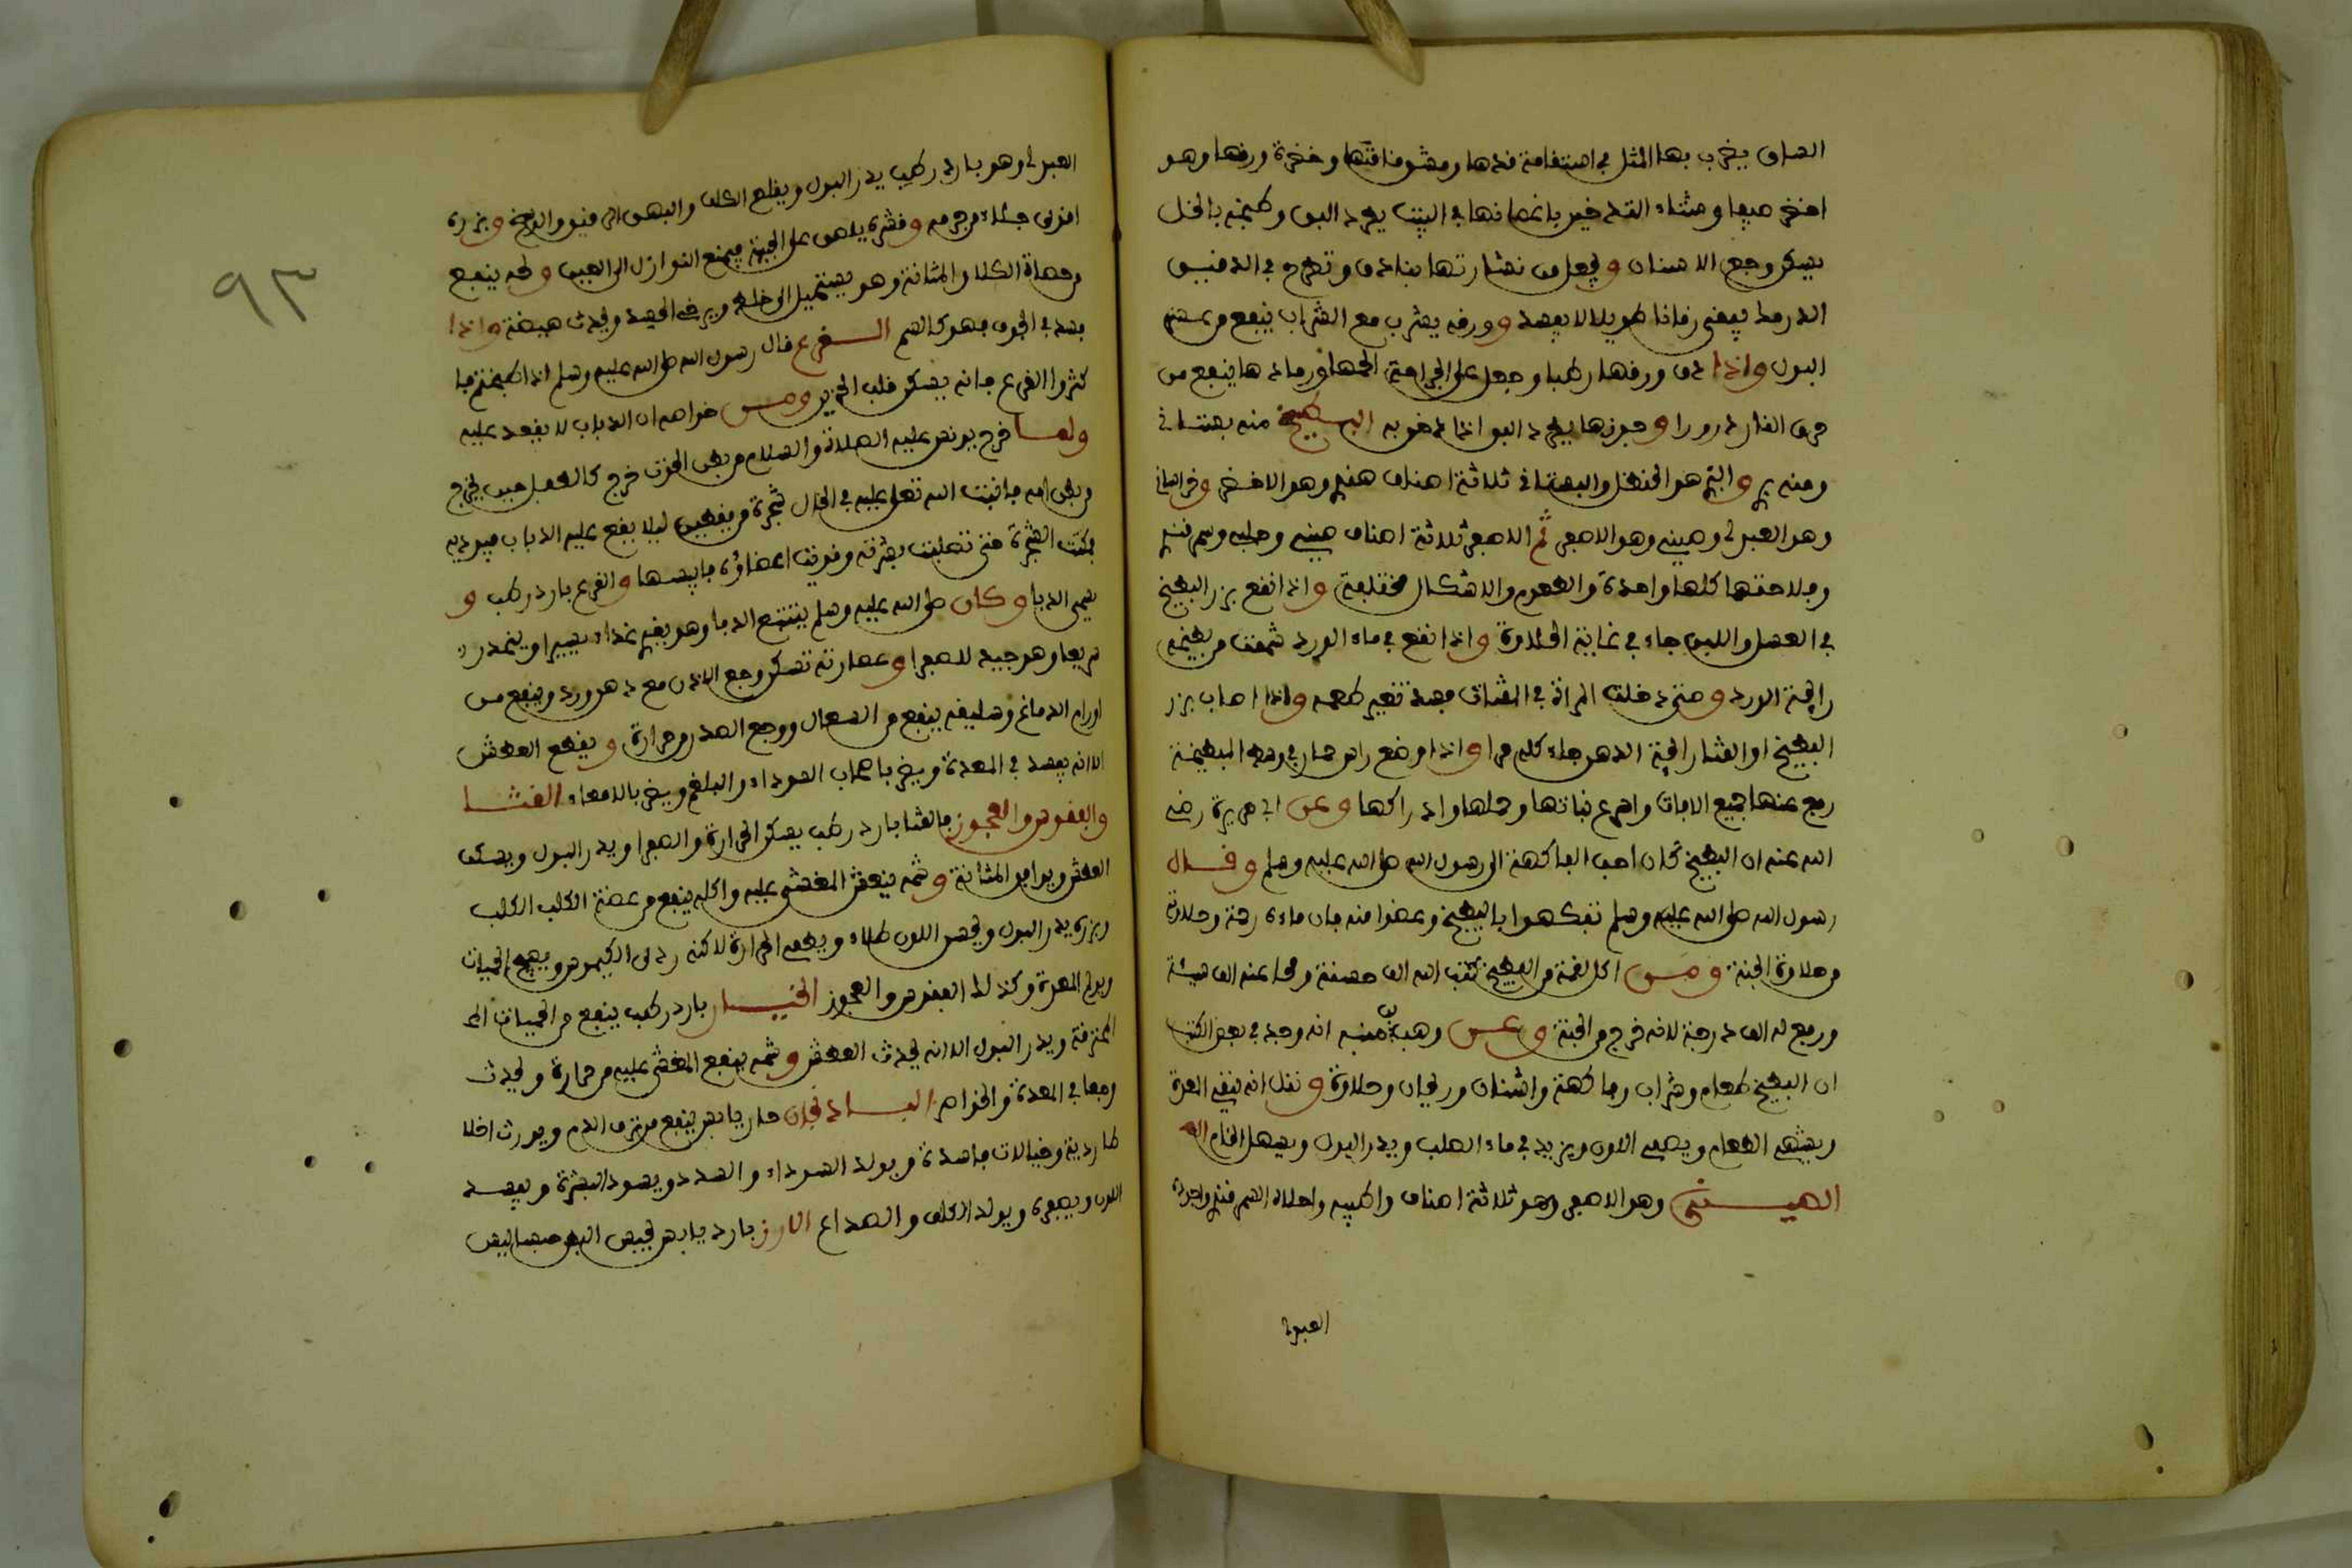 الساق يضرب بها المثل في استقامة قدها ورشوقاقتها وخضرة ورقها وهو
اخضر صيفا وشتاء القد خير باغصانها في البيت يطرد البق وطبيخه بالخل
يسكن وجع الاسنان ويجعل من نشارتها بنادق وتطرح في الدقيق
الدرمك فيبقى زمانا طويلا لا يفسد وورقه يشرب مع الشراب ينفع من عسر
البول واذا دق ورقها رطبا وجعل على الجراحة الحمها ورمادها ينفع من
حرق النار ذرورا وجوزها يطرد البق اذا دخن به البطيخ منه بستاني
ومنه بري والبري هو الحنظل والبستاني ثلاثة اصناف هندي وهو الاخضر وخراساني
وهو العبدلي وصيني وهو الاصفر ثم الاصفر ثلاثة اصناف صيني وحلبي وسمرقندي
وفلاحتها كلها واحدة والطعوم والاشكال مختلفة واذا نقع بزر البطيخ
في العسل واللبن جاء في غاية الحلاوة واذا نقع في ماء الورد شممت من بطيخه
رائحة الورد ومتى دخلت المراة في المقتاة فسد تغير طعمه واذا اصاب بزر
البطيخ او القثا رائحة الدهن جاء كله مرا واذا وضع راس حمار في وسط المبطخة
دفع عنها جميع الافات واسرع نباتها وحملها وادراكها وعن ابي هريرة رضي
الله عنه ان البطيخ كان احب الفاكهة الى رسول الله صلى الله عليه وسلم وقال
رسول الله صلى الله عليه وسلم تفكهوا بالبطيخ وعضوا منه فان ماءه رحمة وحلاوته
من حلاوة الجنة ومن اكل لقمة من البطيخ كتب الله الف حسنة ومحا عنه الف سيئة
ورفع له الف درجة لانه خرج من الجنة وعن وهب بن منبه انه وجد في بعض الكتب
ان البطيخ طعام وشراب وفاكهة واشنان وريحان وحلاوة ونقل انه ينقي المعدة
ويشهي الطعام ويصفي اللون ويزيد في ماء الصلب ويدر البول ويسهل الخام
الصيني وهو الاصفر وهو ثلاثة اصناف واطيبه واحلاه السمرقندي واجوده
العبدلي
٩٣
العبدلي وهو بارد رطب يدر البول ويقلع الكلف والبهق الرقيق والوسخ وبزره
اقوى جلاء من جرمه وقشره يلصق على الجبهة فيمنع النوازل الى العين ولحمه ينفع
من حصاة الكلا والمثانة وهو يستحيل الى خلط ويرخي الجسد ويحدث هيضة واذا
فسد في الجوف فهو كالسم القرع قال رسول الله صلى الله عليه وسلم اذا طبختم فا
كثروا القرع فانه يسكن قلب الحزين ومن خواصه ان الذباب لا يقعد عليه
ولما خرج يونس عليه الصلاة والسلام من بطن الحوت خرج كالطفل حين يخرج
من بطن امه فانبت الله تعلى عليه في الحال شجرة من يقطين ليلا يقع عليه الذباب فيوذيه
فمكثت الشجرة حتى تصلبت بشرته وقويت اعضاؤه فايبسها والقرع بارد رطب و
يسمى الدبا وكان صلى الله عليه وسلم يتتبع الدبا وهو يغذي غذاء يسيرا وينحدر
سريعا وهو جيد للصفرا وعصارته تسكن وجع الاذن مع دهن ورد وينفع من
اورام الدماغ وسليقه ينفع من السعال ووجع الصدر من حرارة ويقطع العطش
الا انه يفسد في المعدة ويضر باصحاب السوداء والبلغم ويضر بالامعاء القثا
والفقوس والعجور فالقثا بارد رطب يسكن الحرارة والصفرا ويدر البول ويسكن
العطش ويوافق المثانة وشمه ينعش المغشي عليه واكله ينفع من عضة الكلب الكلب
وبزره يدر البول ويحسن اللون طلاء ويطفي الحرارة لاكنه ردي الكيموس ويهيج الحميات
ويولم المعدة وكذلك الفقوس والعجور الخيار بارد رطب ينفع من الحميات الم
المحترقة ويدر البول الا انه يحدث العطش وشمه ينفع المغشي عليه من حرارة ويحدث
وجعا في المعدة والخواصر البادنجان حار يابس ينفع من نزف الدم ويورث اخلا
طا ردية وخيالات فاسدة ويولد السوداء والسدد ويسود البشرة ويفسد
اللون ويصفره ويولد الكلف والصداع الارز بارد يابس يحبس البطن حبسا ليس